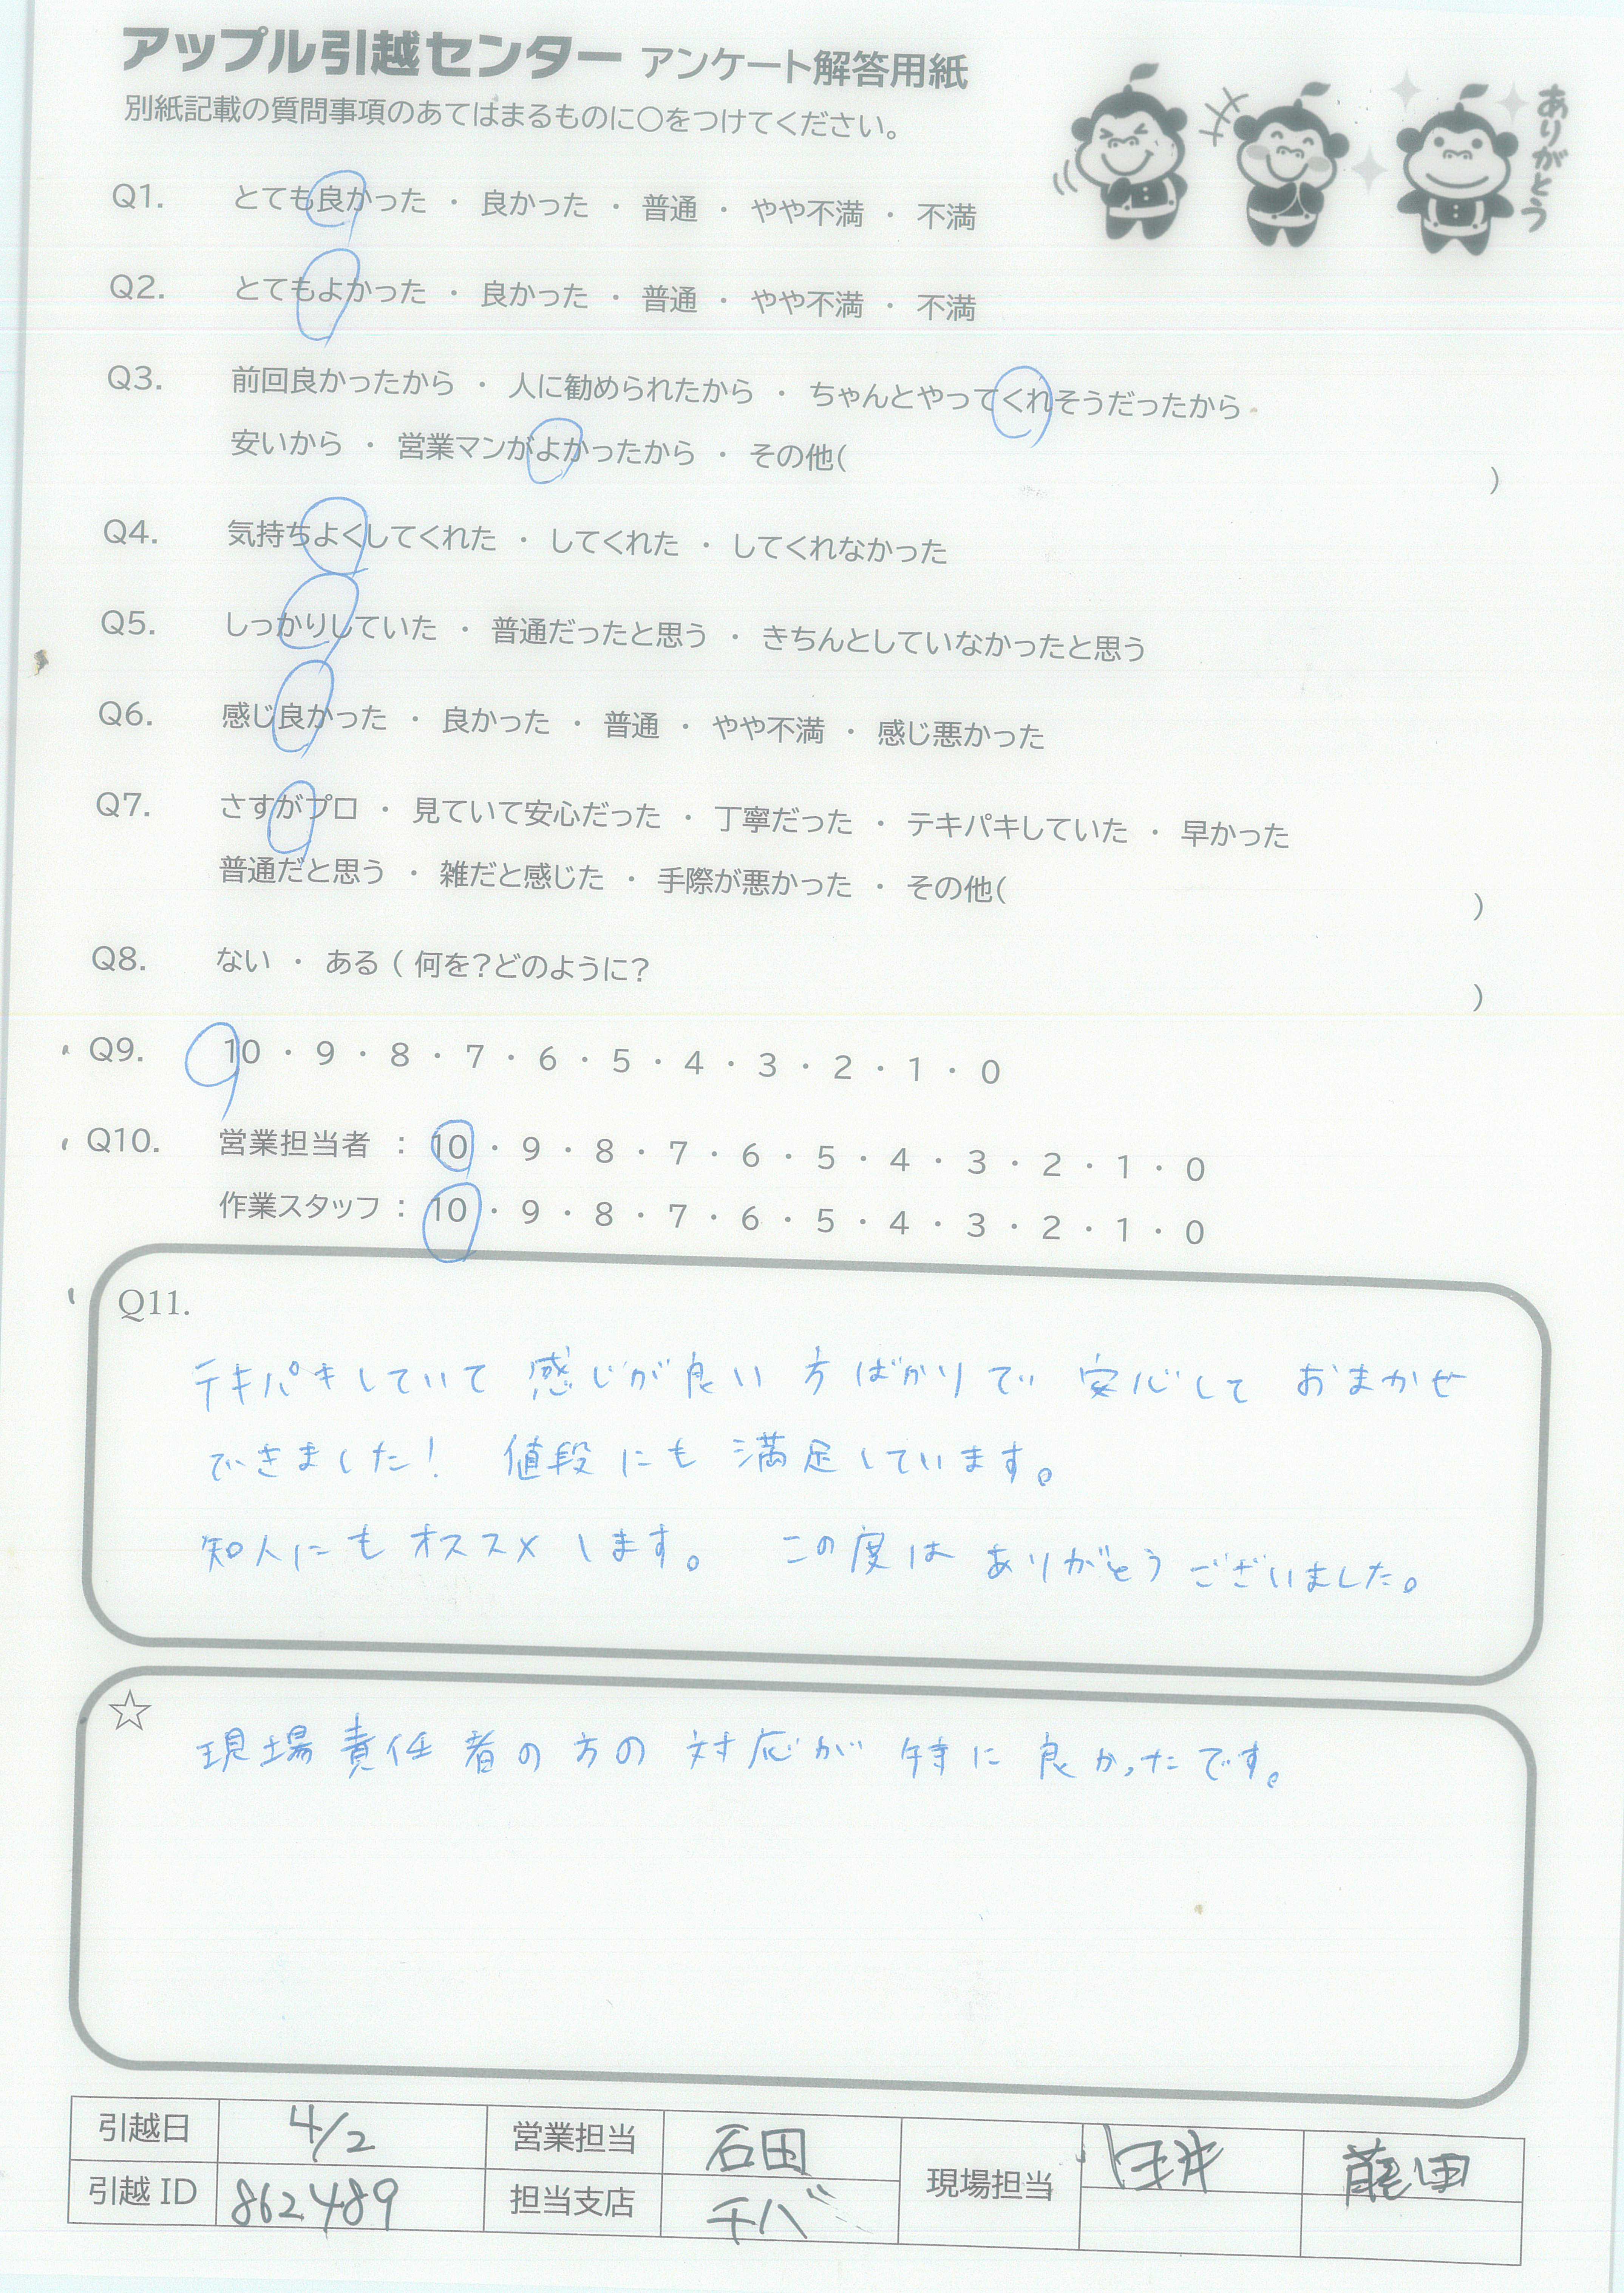 アップル引越センター アンケート解答用紙
別紙記載の質問事項のあてはまるものに○をつけてください。
ありがとう
Q1. とても良かった ・ 良かった ・ 普通 ・ やや不満 ・ 不満
Q2. とてもよかった ・ 良かった ・ 普通 ・ やや不満 ・ 不満
Q3. 前回良かったから ・ 人に勧められたから ・ ちゃんとやってくれそうだったから
安いから ・ 営業マンがよかったから ・ その他( )
Q4. 気持ちよくしてくれた ・ してくれた ・ してくれなかった
Q5. しっかりしていた ・ 普通だったと思う ・ きちんとしていなかったと思う
Q6. 感じ良かった ・ 良かった ・ 普通 ・ やや不満 ・ 感じ悪かった
Q7. さすがプロ ・ 見ていて安心だった ・ 丁寧だった ・ テキパキしていた ・ 早かった
普通だと思う ・ 雑だと感じた ・ 手際が悪かった ・ その他( )
Q8. ない ・ ある ( 何を?どのように? )
Q9. 10 ・ 9 ・ 8 ・ 7 ・ 6 ・ 5 ・ 4 ・ 3 ・ 2 ・ 1 ・ 0
Q10. 営業担当者 : 10 ・ 9 ・ 8 ・ 7 ・ 6 ・ 5 ・ 4 ・ 3 ・ 2 ・ 1 ・ 0
作業スタッフ : 10 ・ 9 ・ 8 ・ 7 ・ 6 ・ 5 ・ 4 ・ 3 ・ 2 ・ 1 ・ 0
Q11.
テキパキしていて 感じが良い 方ばかりで 安心して おまかせ
できました! 値段にも 満足しています。
知人にも オススメします。 この度は ありがとうございました。
☆
現場責任者の方の対応が 特に良かったです。
引越日 4/2 営業担当 石田 現場担当 藤田
引越 ID 862489 担当支店 千バ